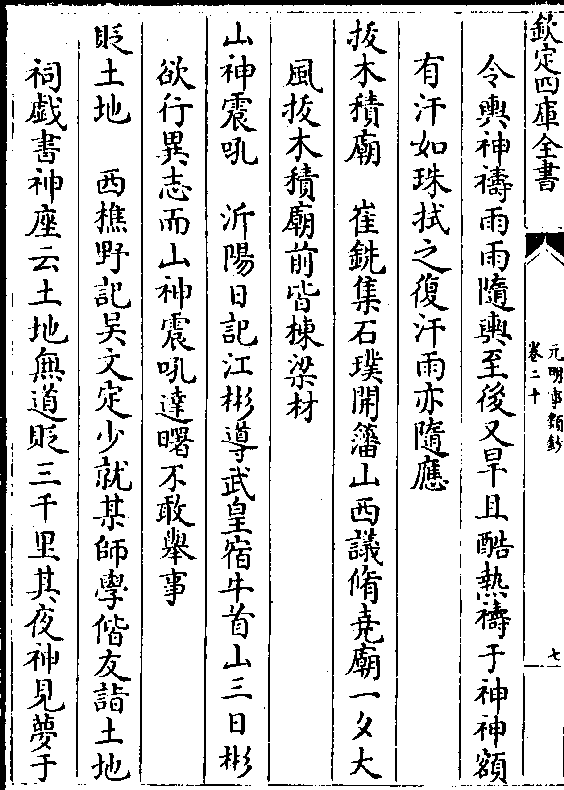 欽定四庫全書
元明事類鈔
卷二十
七
令輿神禱雨雨隨輿至後又旱且酷熱禱于神神額
有汗如珠拭之復汗雨亦隨應
拔木積廟　崔銑集石璞開藩山西議脩堯廟一夕大
風拔木積廟前皆棟梁材
山神震吼　沂陽日記江彬導武皇宿牛首山三日彬
欲行異志而山神震吼達曙不敢舉事
貶土地　西樵野記吴文定少就某師學偕友詣土地
祠戲書神座云土地無道貶三千里其夜神見夢于